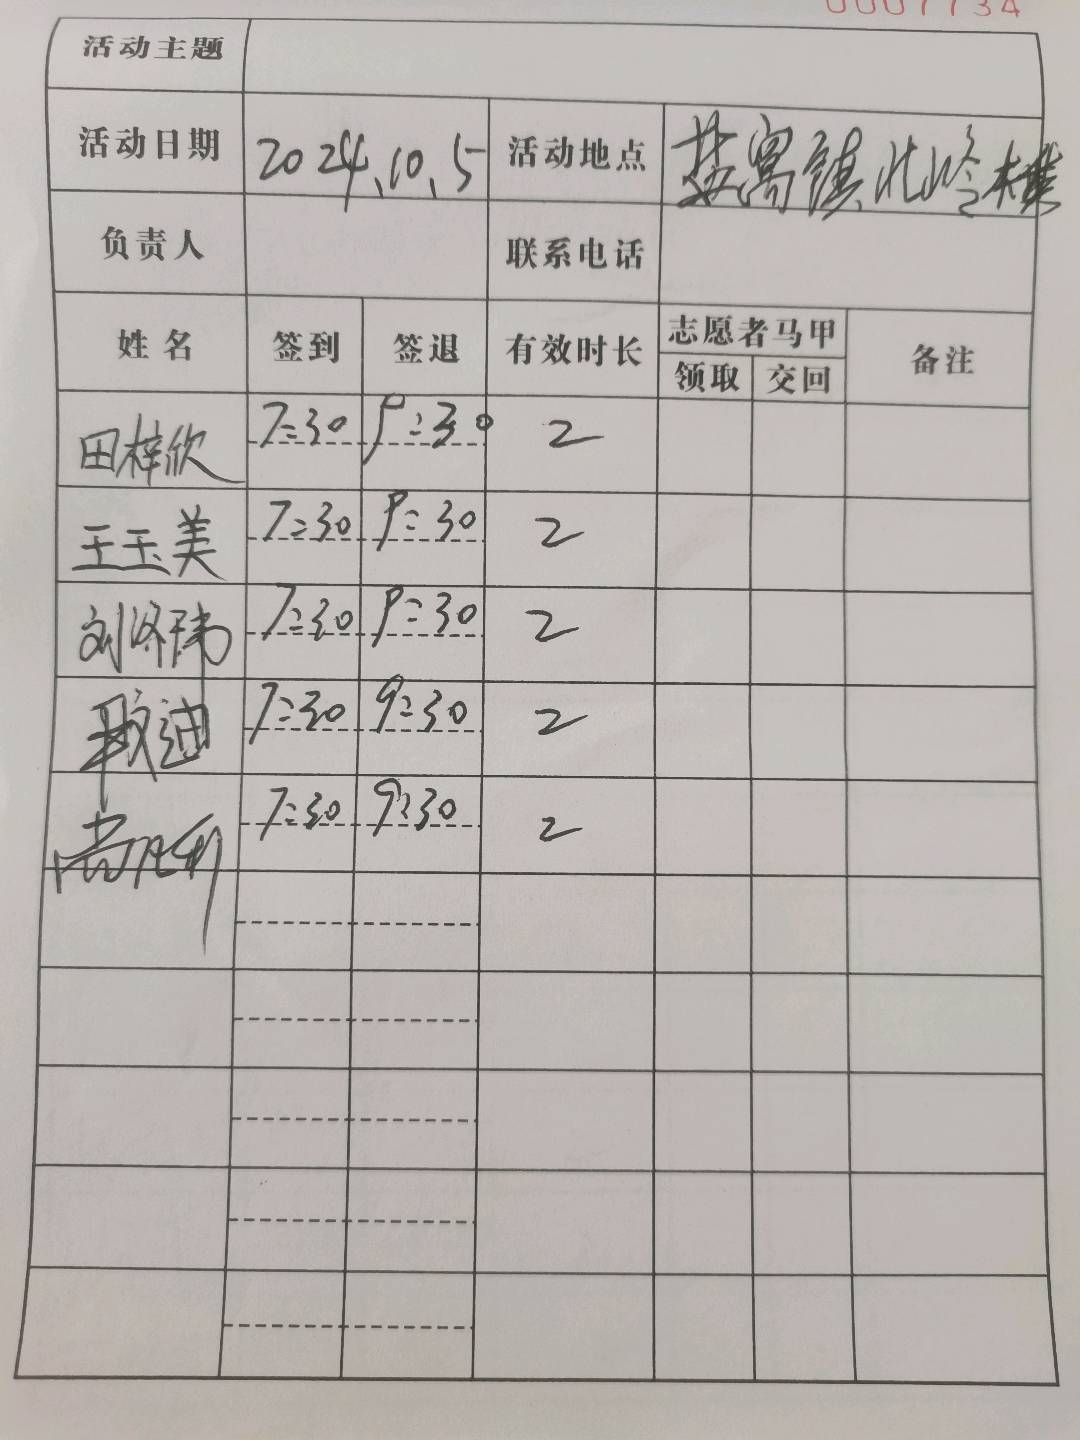 0007734
活动主题
活动日期 2024.10.5 活动地点 镇北
负责人 联系电话
姓名 签到 签退 有效时长 志愿者马甲 备注
领取 交回
田梓欣 7:30 9:30 2
王玉美 7:30 9:30 2
刘 7:30 9:30 2
迪 7:30 9:30 2
7:30 9:30 2